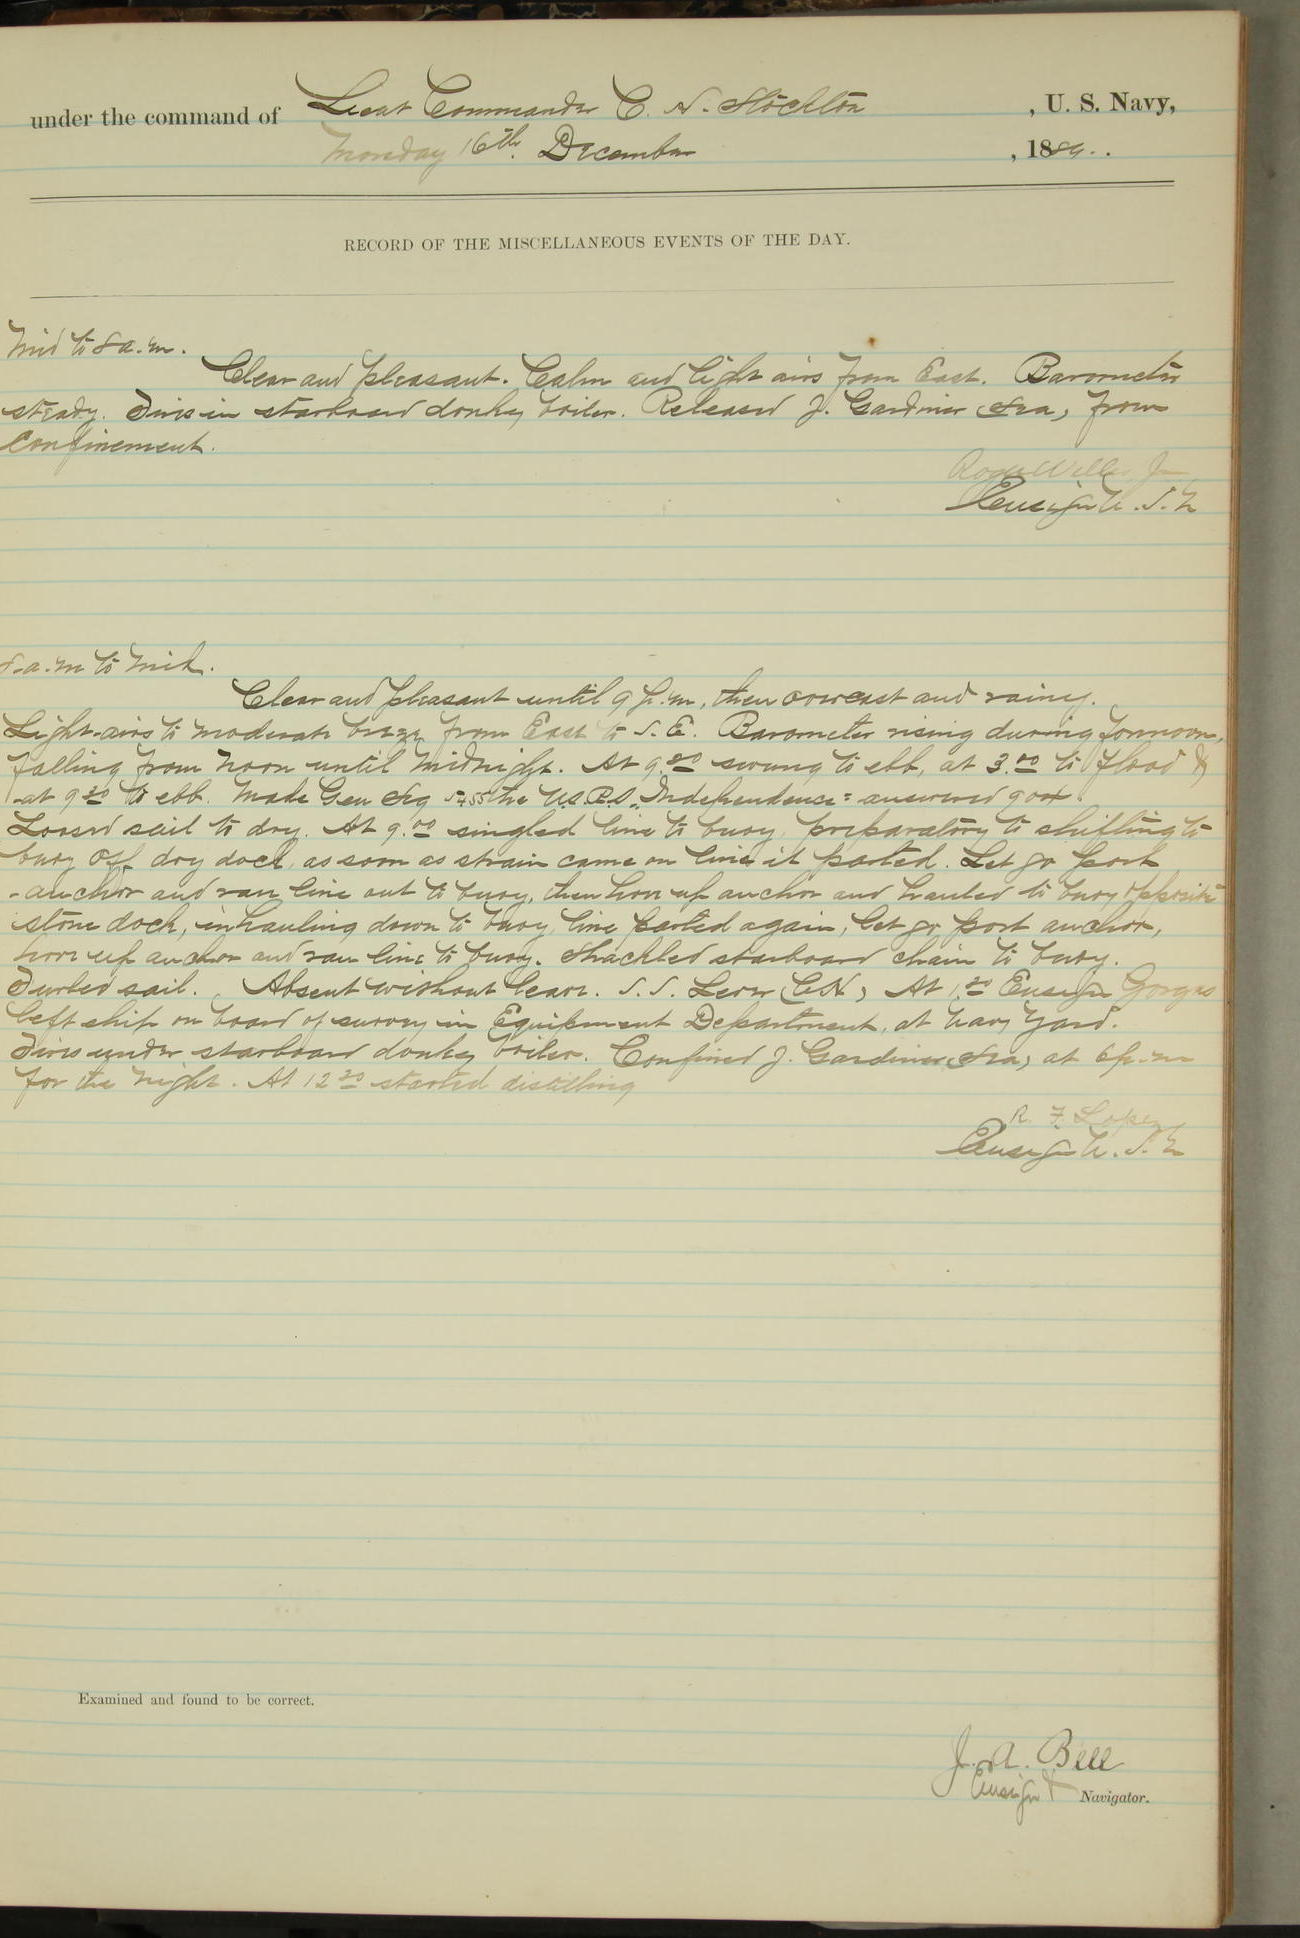 under the command of Lieut Commander C. H. Stockton , U. S. Navy,
Monday 16th. December , 1889.
RECORD OF THE MISCELLANEOUS EVENTS OF THE DAY.
Mid to 8 a.m.
Clear and pleasant. Calm and light airs from East. Barometer
steady. Fires in starboard donkey boiler. Released J. Gardiner (Sea) from
confinement.
Roger Welles Jr
Ensign U.S.N
8.a.m to Mid.
Clear and pleasant until 9 p.m, then overcast and rainy.
Light airs to moderate breeze from East to S.E. Barometer rising during forenoon,
falling from Noon until Midnight. At swung to ebb, at 3.00 to flood &
at 9 30 to ebb. Made Gen Sig 5455 the U.S.R.S. "Independence" answered
Loosed sail to dry. At 9.00 singled line to buoy, preparatory to shifting to
buoy off dry dock, as soon as strain came on line it parted. Let go port
anchor and ran line out to buoy, then hove up anchor and hauled to buoy opposite
stone dock, in hauling down to buoy, line parted again, let go port anchor,
hove up anchor and ran line to buoy. Shackled starboard chain to buoy.
Furled sail. Absent without leave. S.S. At Ensign
left ship on board of survey in Equipment Department, at Navy Yard.
Fires under starboard donkey boiler. Confined J. Gardiner (Sea) at 6 p.m
for the night. At started distilling
R. F. Lopez
Ensign U.S.N
Examined and found to be correct.
J. A. Bell
Ensign & Navigator.